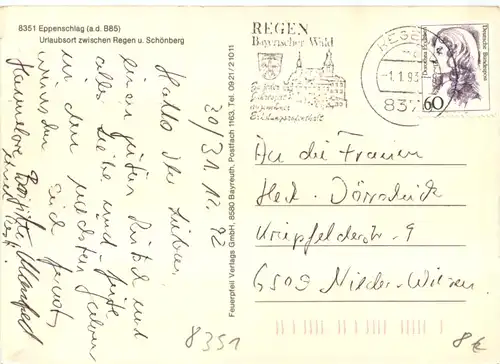 8351 Eppenschlag (a.d. B85)
Urlaubsort zwischen Regen u. Schönberg
30/31.12.92
Hallo Ihr Lieben
einen guten Rutsch und
alles Liebe und Gute
in den nächsten Jahren
wünschen Euch
Hannelore Brigitte, Manfred
Feuerpfeil Verlags GmbH, 8580 Bayreuth, Postfach 1163, Tel. 0921/21011
REGEN
Bayerischer Wald
Zu jeder
Jahreszeit
angenehmer
Erholungsaufenthalt
REGEN
-1.1.93
837
Deutsche Bundespost
60
An die Frauen
Heck - Dörrstück
Kripfelderstr. 9
6509 Nieder-Wiesen
8351
8€